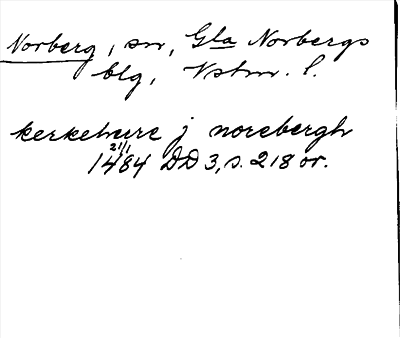 Norberg, sn, Gla Norbergs
blg, Vstm. l.
kerkehwre j norebergh
21/1
1484 DD 3, s. 218 or.